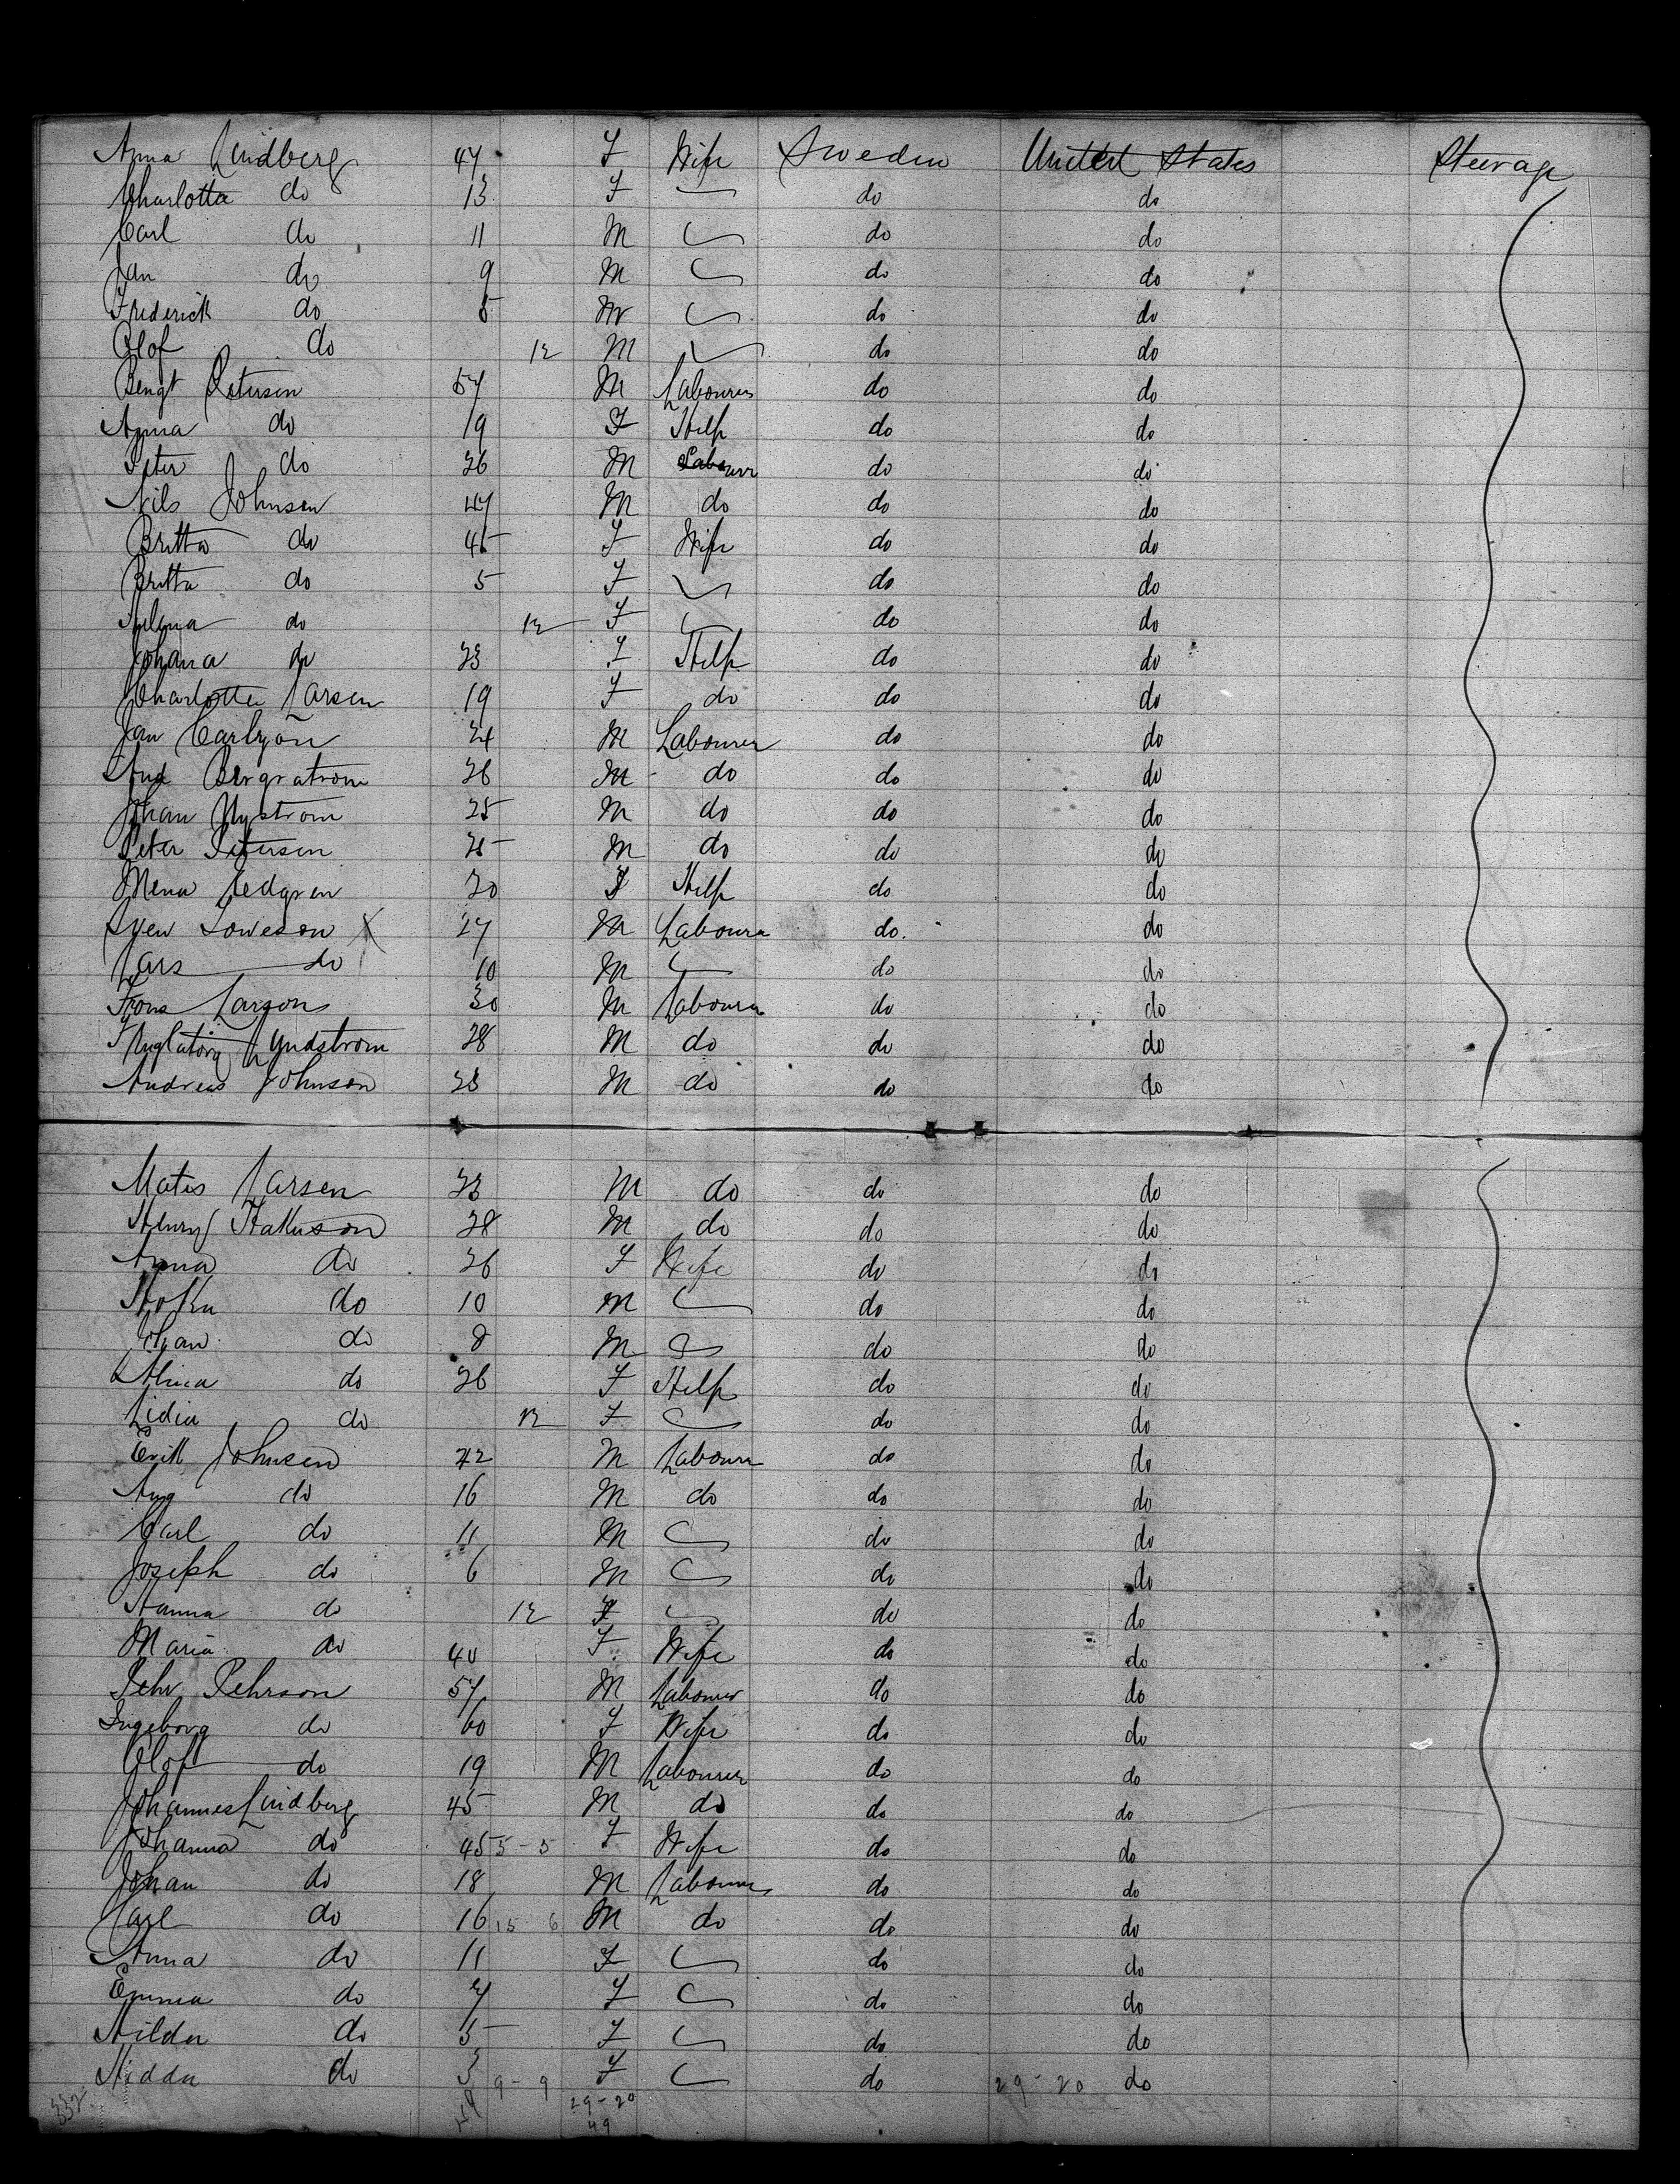 Anna Lindberg 47 F Wife Sweden United States Steerage
Charlotta do 13 F do do
Carl do 11 M do do
Jan do 9 M do do
Frederick do 5 M do do
Olof do 12 M do do
Bengt Petersen 57 M Labourer do do
Anna do 19 F Help do do
Peter do 26 M Labourer do do
Nils Johnsen 47 M do do do
Britta do 45 F Wife do do
Britta do 5 F do do
do 12 F do do
Johana do 23 F Help do do
Charlotte Larsen 19 F do do do
Jan Carlson 24 M Labourer do do
Aug Bergratrom 26 M do do do
Johan Nystrom 25 M do do do
Peter Petersen 25 M do do do
Mena Sedgren 20 F Help do do
Sven Soweson X 27 M Laboura do do
Lars do 10 M do do
Frons Larsons 30 M Labourer do do
Lyndstrom 28 M do do do
Andreas Johnson 23 M do do do
Mates Larsen 23 M do do do
Henry 28 M do do do
Anna do 26 F Wife do do
do 10 M do do
Johan do 8 M do do
Alma do 26 F Help do do
Lidia do 12 F do do
Erik Johnsen 42 M Labourer do do
Aug do 16 M do do do
Carl do 11 M do do
Joseph do 6 M do do
Hanna do 12 F do do
Maria do 40 F Wife do do
Pehr Pehrson 57 M Labourer do do
Ingeborg do 60 F Wife do do
Olof do 19 M Labourer do do
Johannes Lindberg 45 M do do do
Johanna do 45 5 - 5 F Wife do do
Johan do 18 M Labourer do do
Carl do 16 15 6 M do do do
Anna do 11 F do do
Emma do 7 F do do
Hilda do 5 F do do
Hidda do 3 9 - 9 F do 29 - 20 do
332 49 29 - 20
49